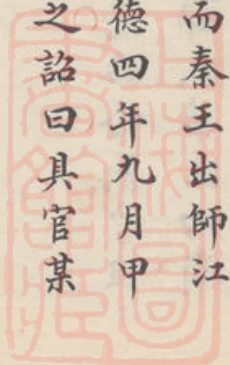 而秦王出師江
德四年九月甲
之詔曰具官某